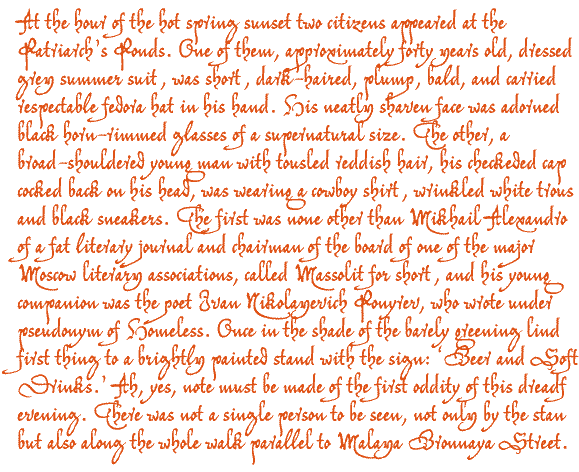 At the hour of the hot spring sunset two citizens appeared at the
Patriarch's Ponds. One of them, approximately forty years old, dressed
grey summer suit, was short, dark-haired, plump, bald, and carried
respectable fedora hat in his hand. His neatly shaven face was adorned
black horn-rimmed glasses of a supernatural size. The other, a
broad-shouldered young man with tousled reddish hair, his checkeded cap
cocked back on his head, was wearing a cowboy shirt, wrinkled white trous
and black sneakers. The first was none other than Mikhail Alexandro
of a fat literary journal and chairman of the board of one of the major
Moscow literary associations, called Massolit for short, and his young
companion was the poet Ivan Nikolayevich Ponyriev, who wrote under
pseudonym of Homeless. Once in the shade of the barely greening lind
first thing to a brightly painted stand with the sign: 'Beer and Soft
Drinks.' Ah, yes, note must be made of the first oddity of this dreadf
evening. There was not a single person to be seen, not only by the stan
but also along the whole walk parallel to Malaya Bronnaya Street.